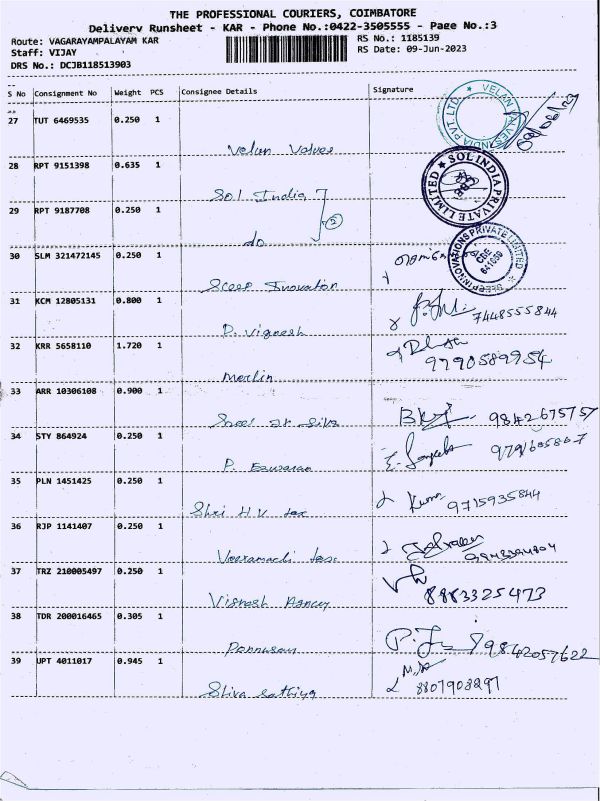 THE PROFESSIONAL COURIERS, COIMBATORE
Delivery Runsheet - KAR - Phone No.:0422-3505555 - Page No.:3
Route: VAGARAYAMPALAYAM KAR RS No.: 1185139
Staff: VIJAY RS Date: 09-Jun-2023
DRS No.: DCJB118513903
S No Consignment No Weight PCS Consignee Details Signature
VELAN VALVES INDIA PVT. LTD.
27 TUT 6469535 0.250 1
Velan Valves
28 RPT 9151398 0.635 1
SOL INDIA PRIVATE LIMITED
CBE
Sol India
29 RPT 9187708 0.250 1
2
do
30 SLM 321472145 0.250 1
INNOVATIONS PRIVATE LIMITED
CBE
641059
31 KCM 12805131 0.800 1
7448555844
P. Vignesh
32 KRR 5658110 1.720 1
9790589954
Merlin
33 ARR 10306108 0.900 1
9842675757
34 STY 864924 0.250 1
P. Eswaran
35 PLN 1451425 0.250 1
Kumar 9715935844
Shri H V tex
36 RJP 1141407 0.250 1
Veeramachi tex
37 TRZ 210005497 0.250 1
8883325473
Vignesh Agency
38 TDR 200016465 0.305 1
9842057622
Ponnusamy
39 UPT 4011017 0.945 1
8807908297
Shiva Sathiya